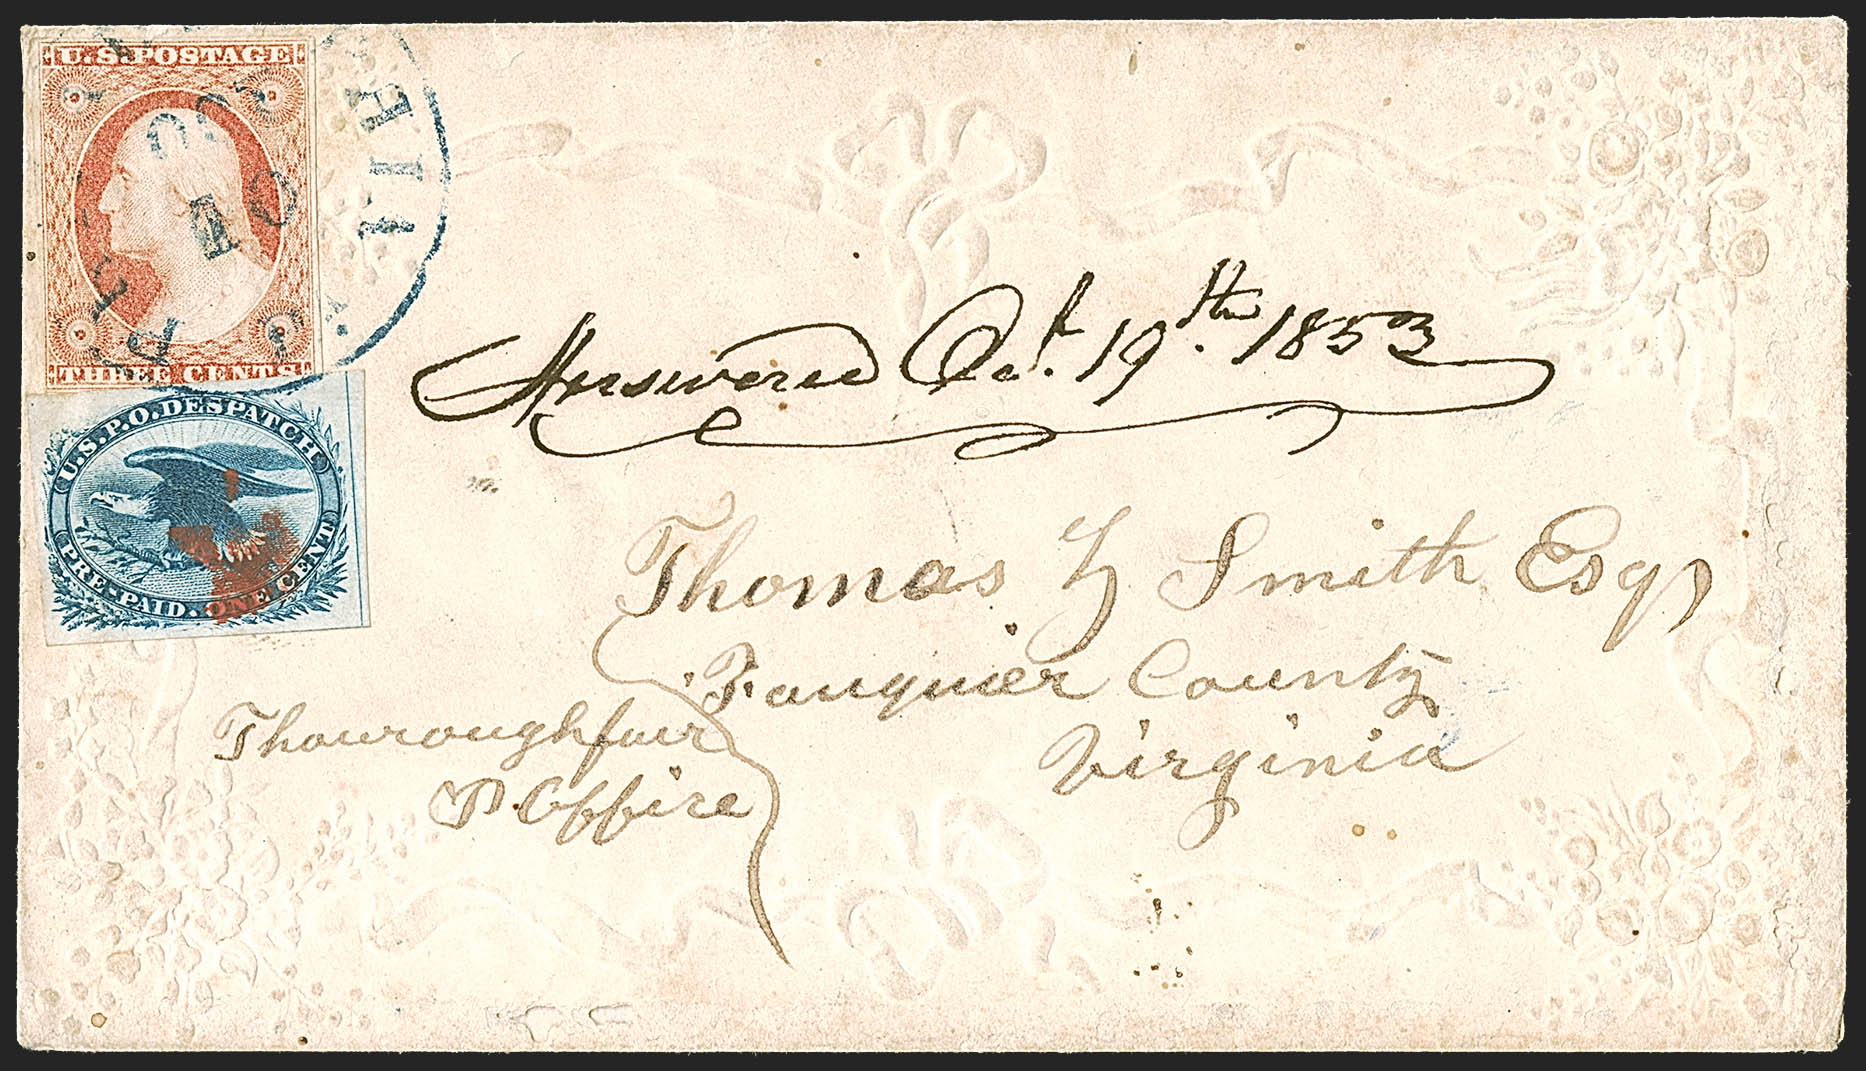 U.S. POSTAGE
THREE CENTS
U.S.P.O. DESPATCH
PRE-PAID. ONE CENT
Answered Oct. 19th. 1853
Thomas
Smith Esq,
Fauquier County
Virginia
Thouroughfair
P. Office